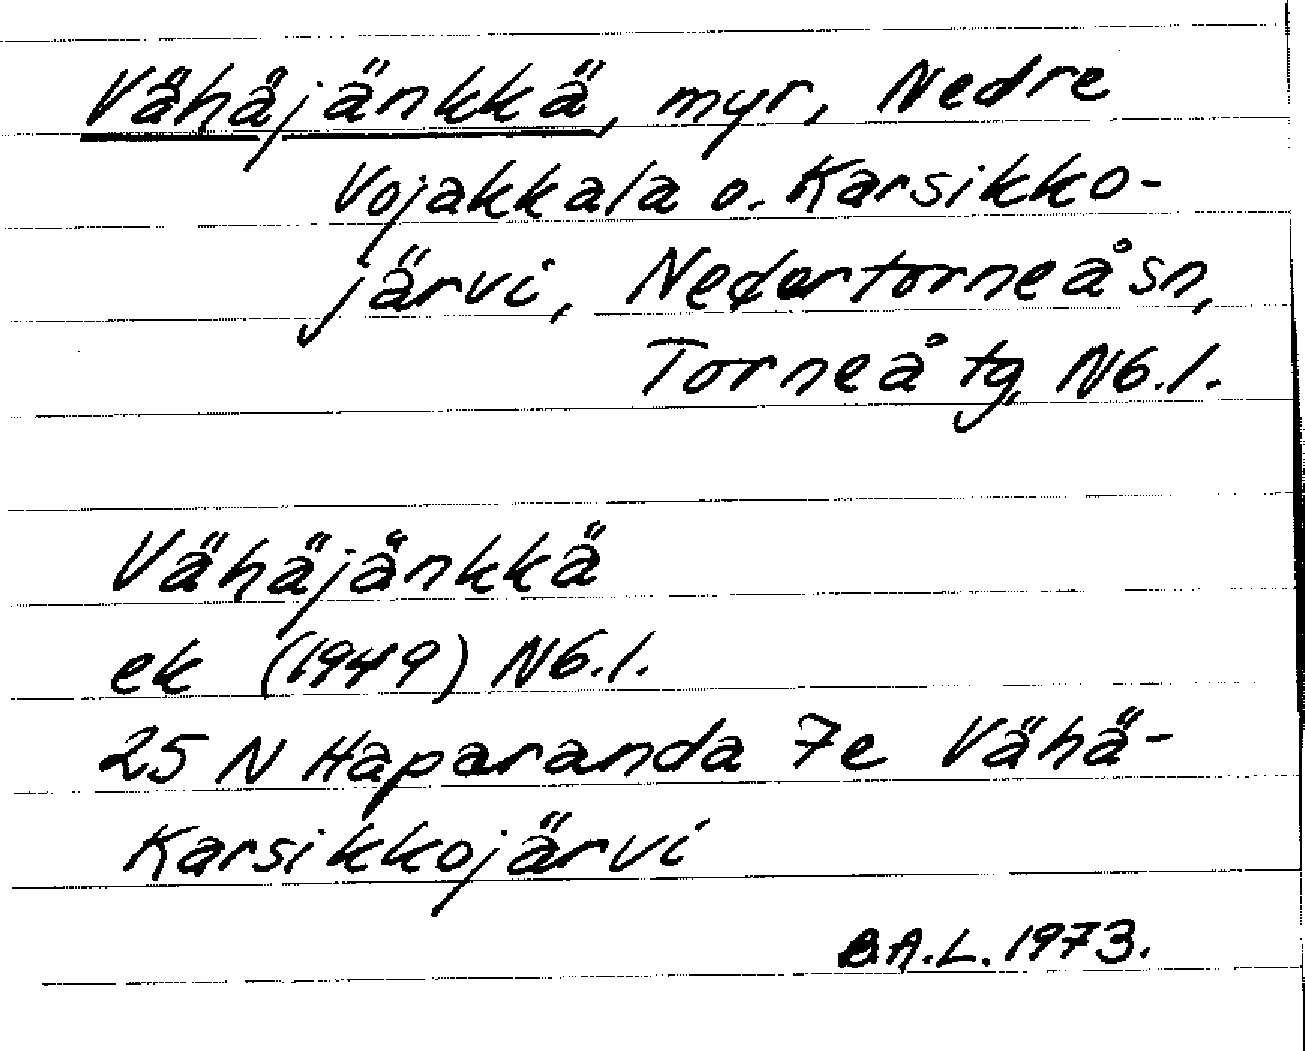 Vähäjänkkä, myr, Nedre
Vojakkala o. Karsikko-
järvi, Nedertorneå sn,
Torneå tg, Nb.l.
Vähäjänkkä
ek (1949) Nb.l.
25 N Haparanda 7e Vähä-
Karsikkojärvi
B.A.L. 1973.